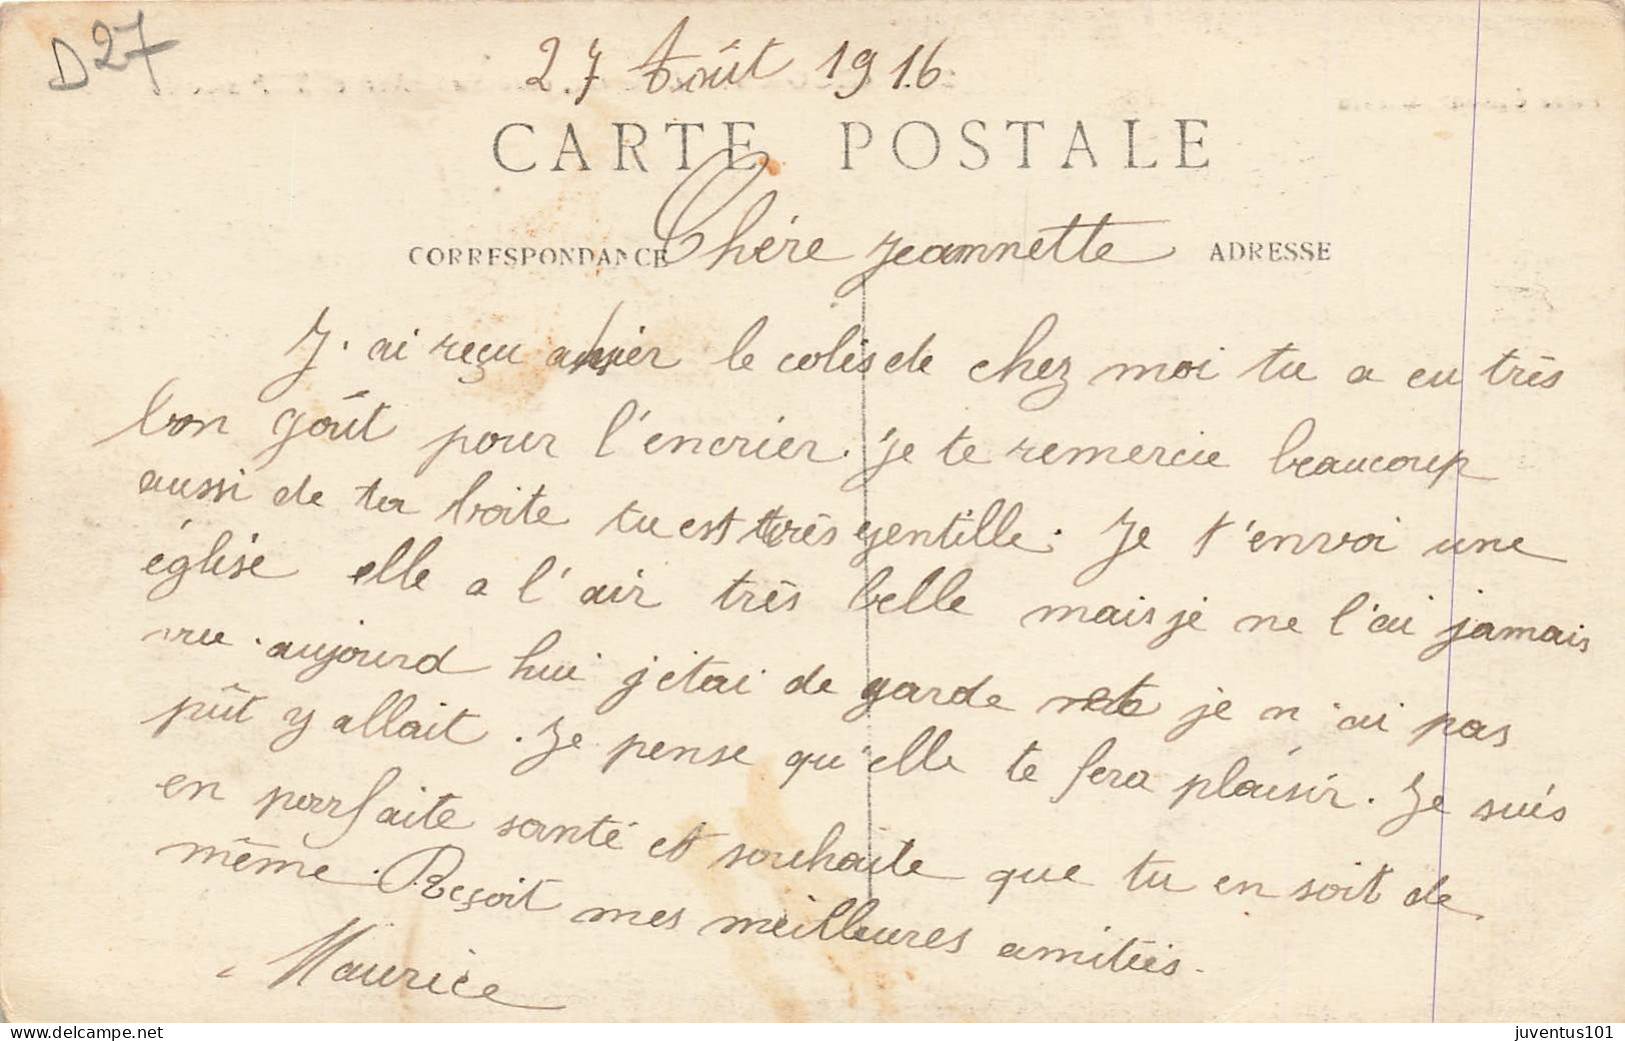 D27
27 Août 1916
CARTE POSTALE
CORRESPONDANCE
Chère Jeannette
ADRESSE
J'ai reçu hier le colis de chez moi tu a eu très
bon goût pour l'encrier. Je te remercie beaucoup
aussi de ta boite tu est très gentille. Je t'envoi une
église elle a l'air très belle mais je ne l'ai jamais
vue. aujourd hui j'etai de garde et je n'ai pas
pût y allait. Je pense qu'elle te fera plaisir. Je suis
en parfaite santé et souhaite que tu en soit de
même. Reçoit mes meilleures amitiés.
Maurice
juventus101